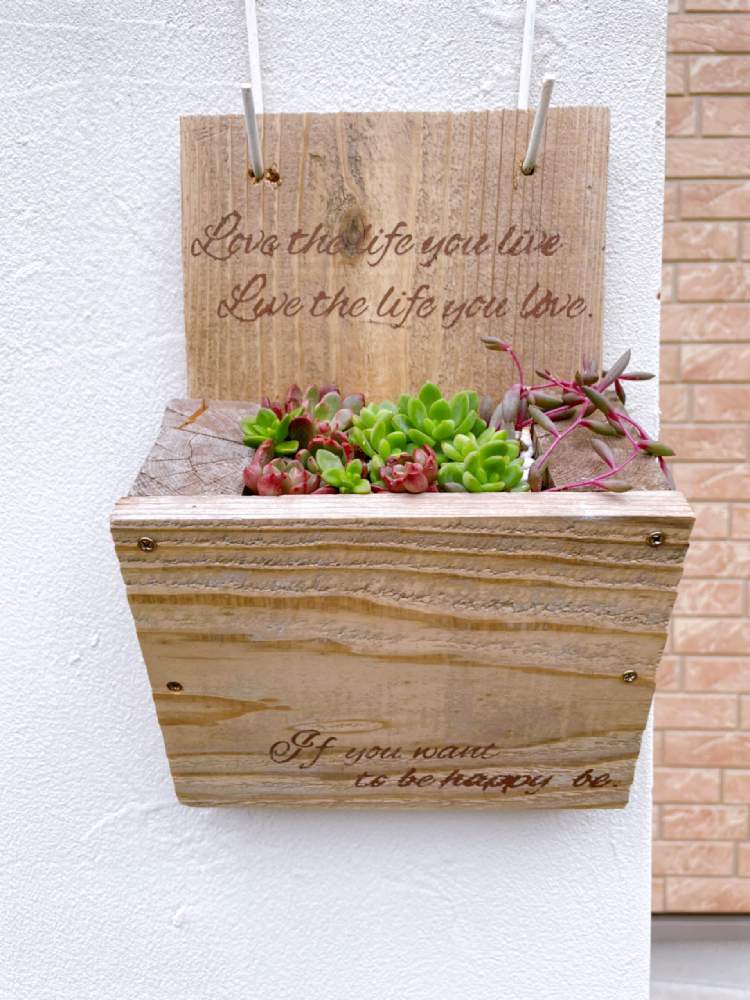 Love the life you live
Live the life you love.
If you want
to be happy be.